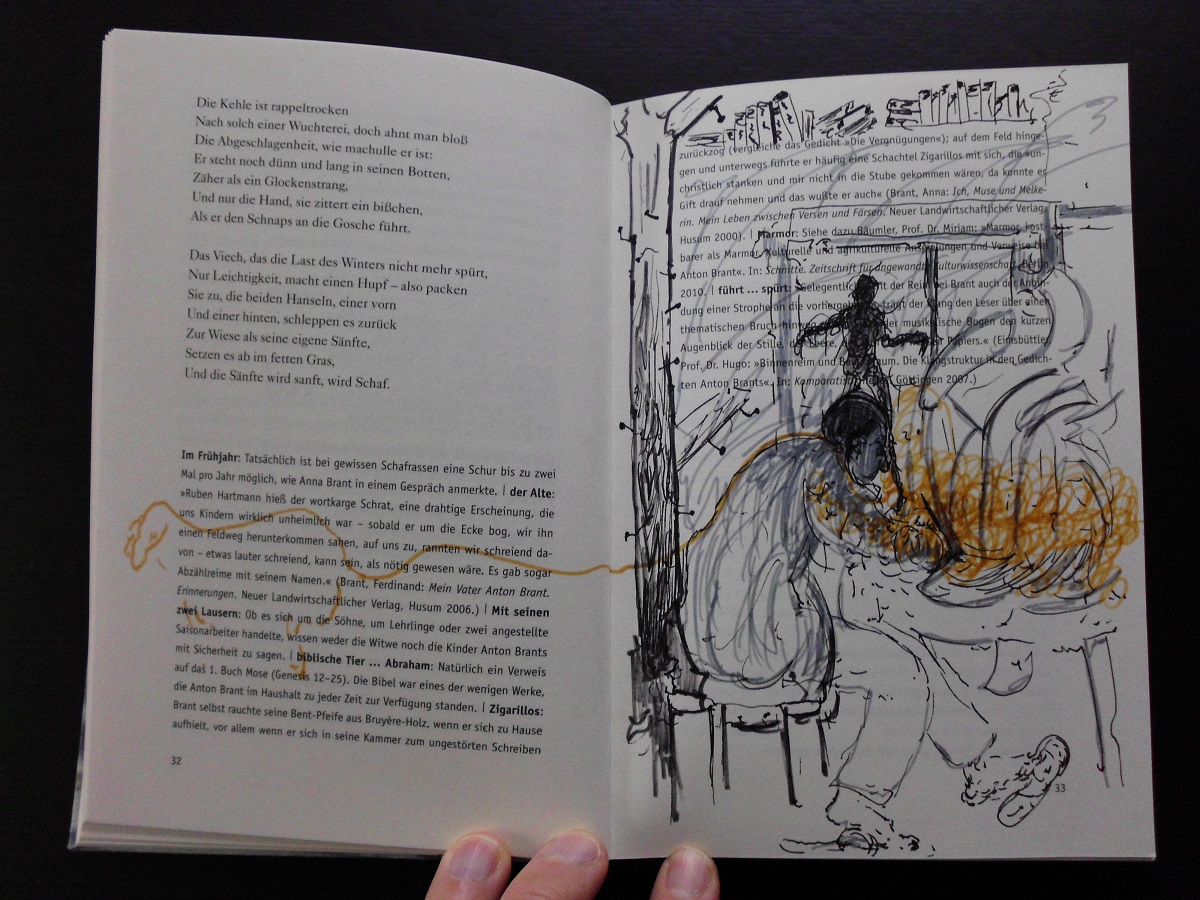 Die Kehle ist rappeltrocken
Nach solch einer Wuchterei, doch ahnt man bloß
Die Abgeschlagenheit, wie machulle er ist:
Er steht noch dünn und lang in seinen Botten,
Zäher als ein Glockenstrang,
Und nur die Hand, sie zittert ein bißchen,
Als er den Schnaps an die Gosche führt.
Das Viech, das die Last des Winters nicht mehr spürt,
Nur Leichtigkeit, macht einen Hupf – also packen
Sie zu, die beiden Hanseln, einer vorn
Und einer hinten, schleppen es zurück
Zur Wiese als seine eigene Sänfte,
Setzen es ab im fetten Gras,
Und die Sänfte wird sanft, wird Schaf.
Im Frühjahr: Tatsächlich ist bei gewissen Schafrassen eine Schur bis zu zwei
Mal pro Jahr möglich, wie Anna Brant in einem Gespräch anmerkte. | der Alte:
»Ruben Hartmann hieß der wortkarge Schrat, eine drahtige Erscheinung, die
uns Kindern wirklich unheimlich war – sobald er um die Ecke bog, wir ihn
einen Feldweg herunterkommen sahen, auf uns zu, rannten wir schreiend da-
von – etwas lauter schreiend, kann sein, als nötig gewesen wäre. Es gab sogar
Abzählreime mit seinem Namen.« (Brant, Ferdinand: Mein Vater Anton Brant.
Erinnerungen. Neuer Landwirtschaftlicher Verlag, Husum 2006.) | Mit seinen
zwei Lausern: Ob es sich um die Söhne, um Lehrlinge oder zwei angestellte
Saisonarbeiter handelte, wissen weder die Witwe noch die Kinder Anton Brants
mit Sicherheit zu sagen. | biblische Tier ... Abraham: Natürlich ein Verweis
auf das 1. Buch Mose (Genesis 12–25). Die Bibel war eines der wenigen Werke,
die Anton Brant im Haushalt zu jeder Zeit zur Verfügung standen. | Zigarillos:
Brant selbst rauchte seine Bent-Pfeife aus Bruyère-Holz, wenn er sich zu Hause
aufhielt, vor allem wenn er sich in seine Kammer zum ungestörten Schreiben
32
zurückzog (vergleiche das Gedicht »Die Vergnügungen«); auf dem Feld hinge-
gen und unterwegs führte er häufig eine Schachtel Zigarillos mit sich, die »un-
christlich stanken und mir nicht in die Stube gekommen wären, da konnte er
Gift drauf nehmen und das wußte er auch« (Brant, Anna: Ich, Muse und Melke-
rin. Mein Leben zwischen Versen und Färsen. Neuer Landwirtschaftlicher Verlag,
Husum 2000). | Marmor: Siehe dazu Bäumler, Prof. Dr. Miriam: »Marmor, kost-
barer als Marmor. Kulturelle und agrikulturelle Anspielungen und Verweise bei
Anton Brant«. In: Schnitte. Zeitschrift für angewandte Kulturwissenschaft, Berlin
2010. | führt ... spürt: »Gelegentlich dient der Reim bei Brant auch der Anbin-
dung einer Strophe an die vorhergehende, trägt der Klang den Leser über einen
thematischen Bruch hinweg der musikalische Bogen den kurzen
Augenblick der Stille, der Leere, Papiers.« (Eimsbüttler,
Prof. Dr. Hugo: »Binnenreim und Die Klangstruktur in den Gedich-
ten Anton Brants«. In: Komparatistische Göttingen 2007.)
33